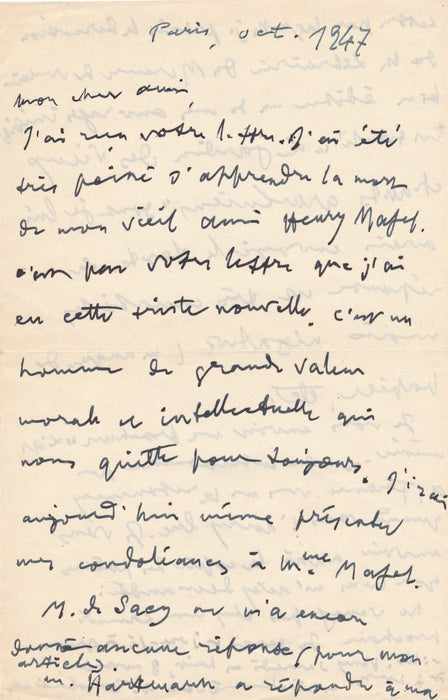 Paris, oct. 1947
mon cher ami,
J'ai reçu votre lettre. J'ai été
très peiné d'apprendre la mort
de mon vieil ami Henry
c'est par votre lettre que j'ai
eu cette triste nouvelle. c'est un
homme de grande valeur
morale et intellectuelle qui
nous quitte pour toujours. J'irai
aujourd'hui même présenter
mes condoléances à Mme
M. de Sacy ne m'a encore
donné aucune réponse, (pour mon
article).
m. Hartmann a répondu à ma